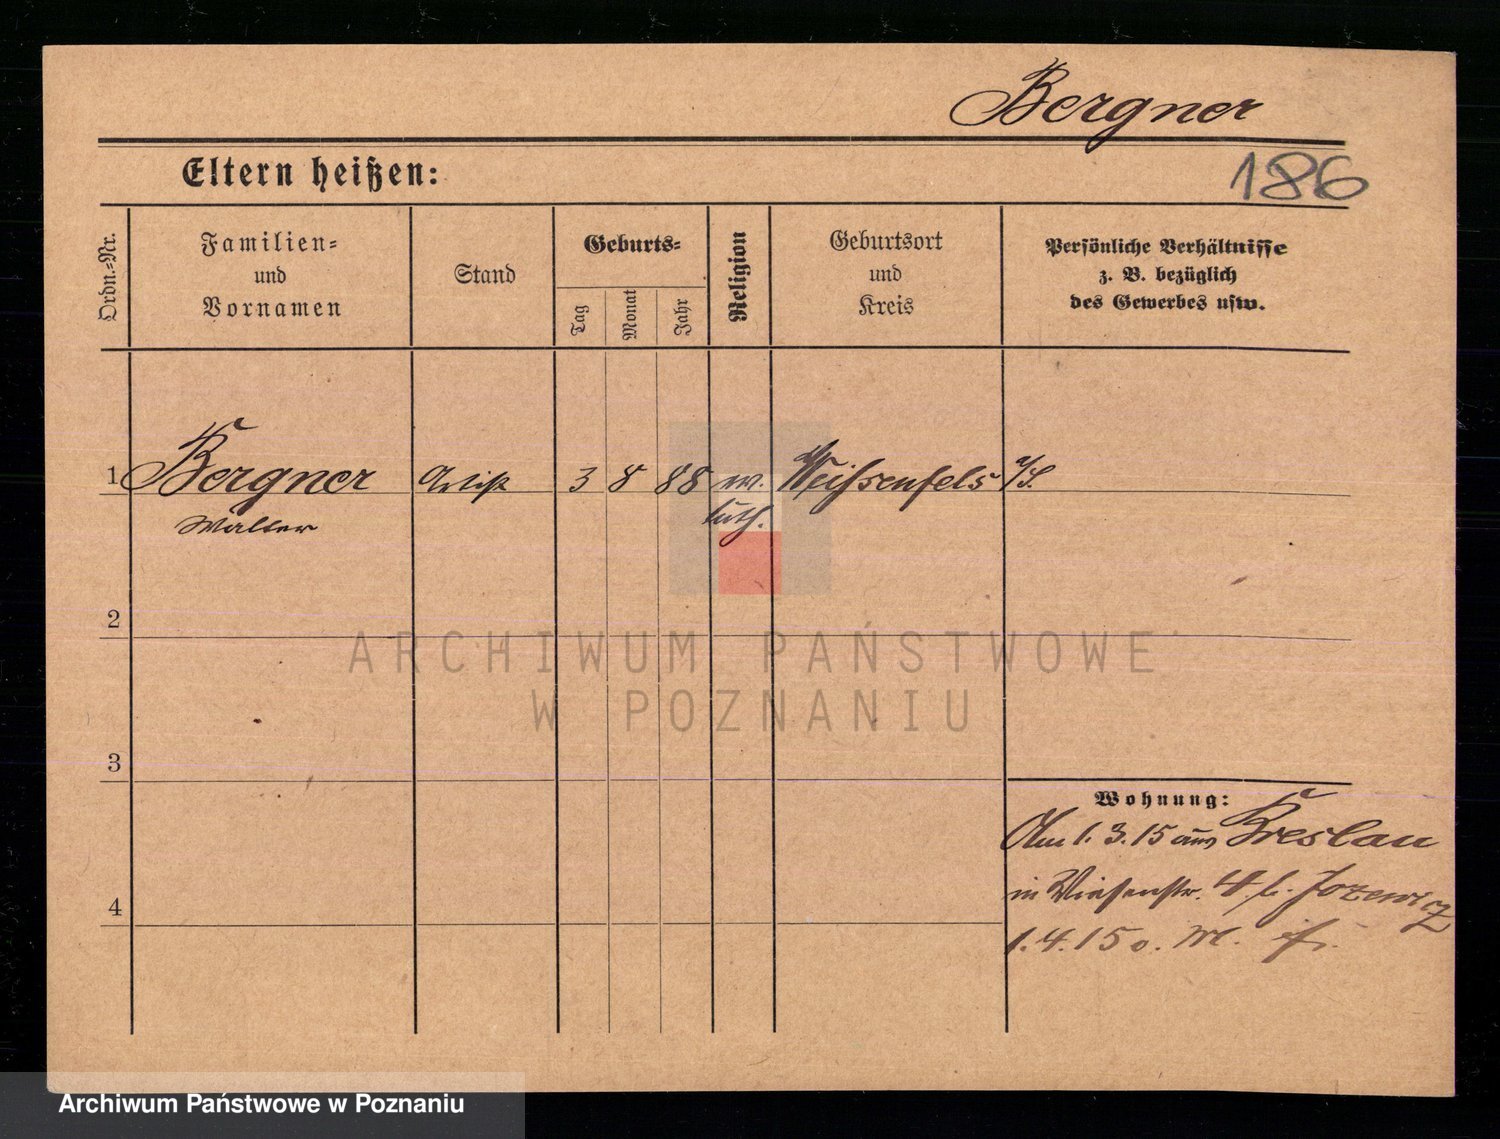 Bergner
186
Eltern heißen:
Ordn.-Nr.
Familien-
und
Vornamen
Stand
Geburts-
Tag
Monat
Jahr
Religion
Geburtsort
und
Kreis
Persönliche Verhältnisse
z. B. bezüglich
des Gewerbes usw.
1 Bergner Artist 3 8 88 Weißenfels a/S.
Walter luth.
2
ARCHIWUM PAŃSTWOWE
W POZNANIU
3
Wohnung:
Am 1. 3. 15 aus Breslau
in Wiesenstr. 4 b. Jozewicz
4
1. 4. 15 o. M.
Archiwum Państwowe w Poznaniu